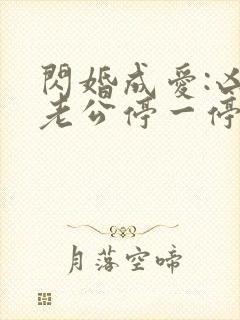 閃婚成愛:凶
老公停一停
月落空啼